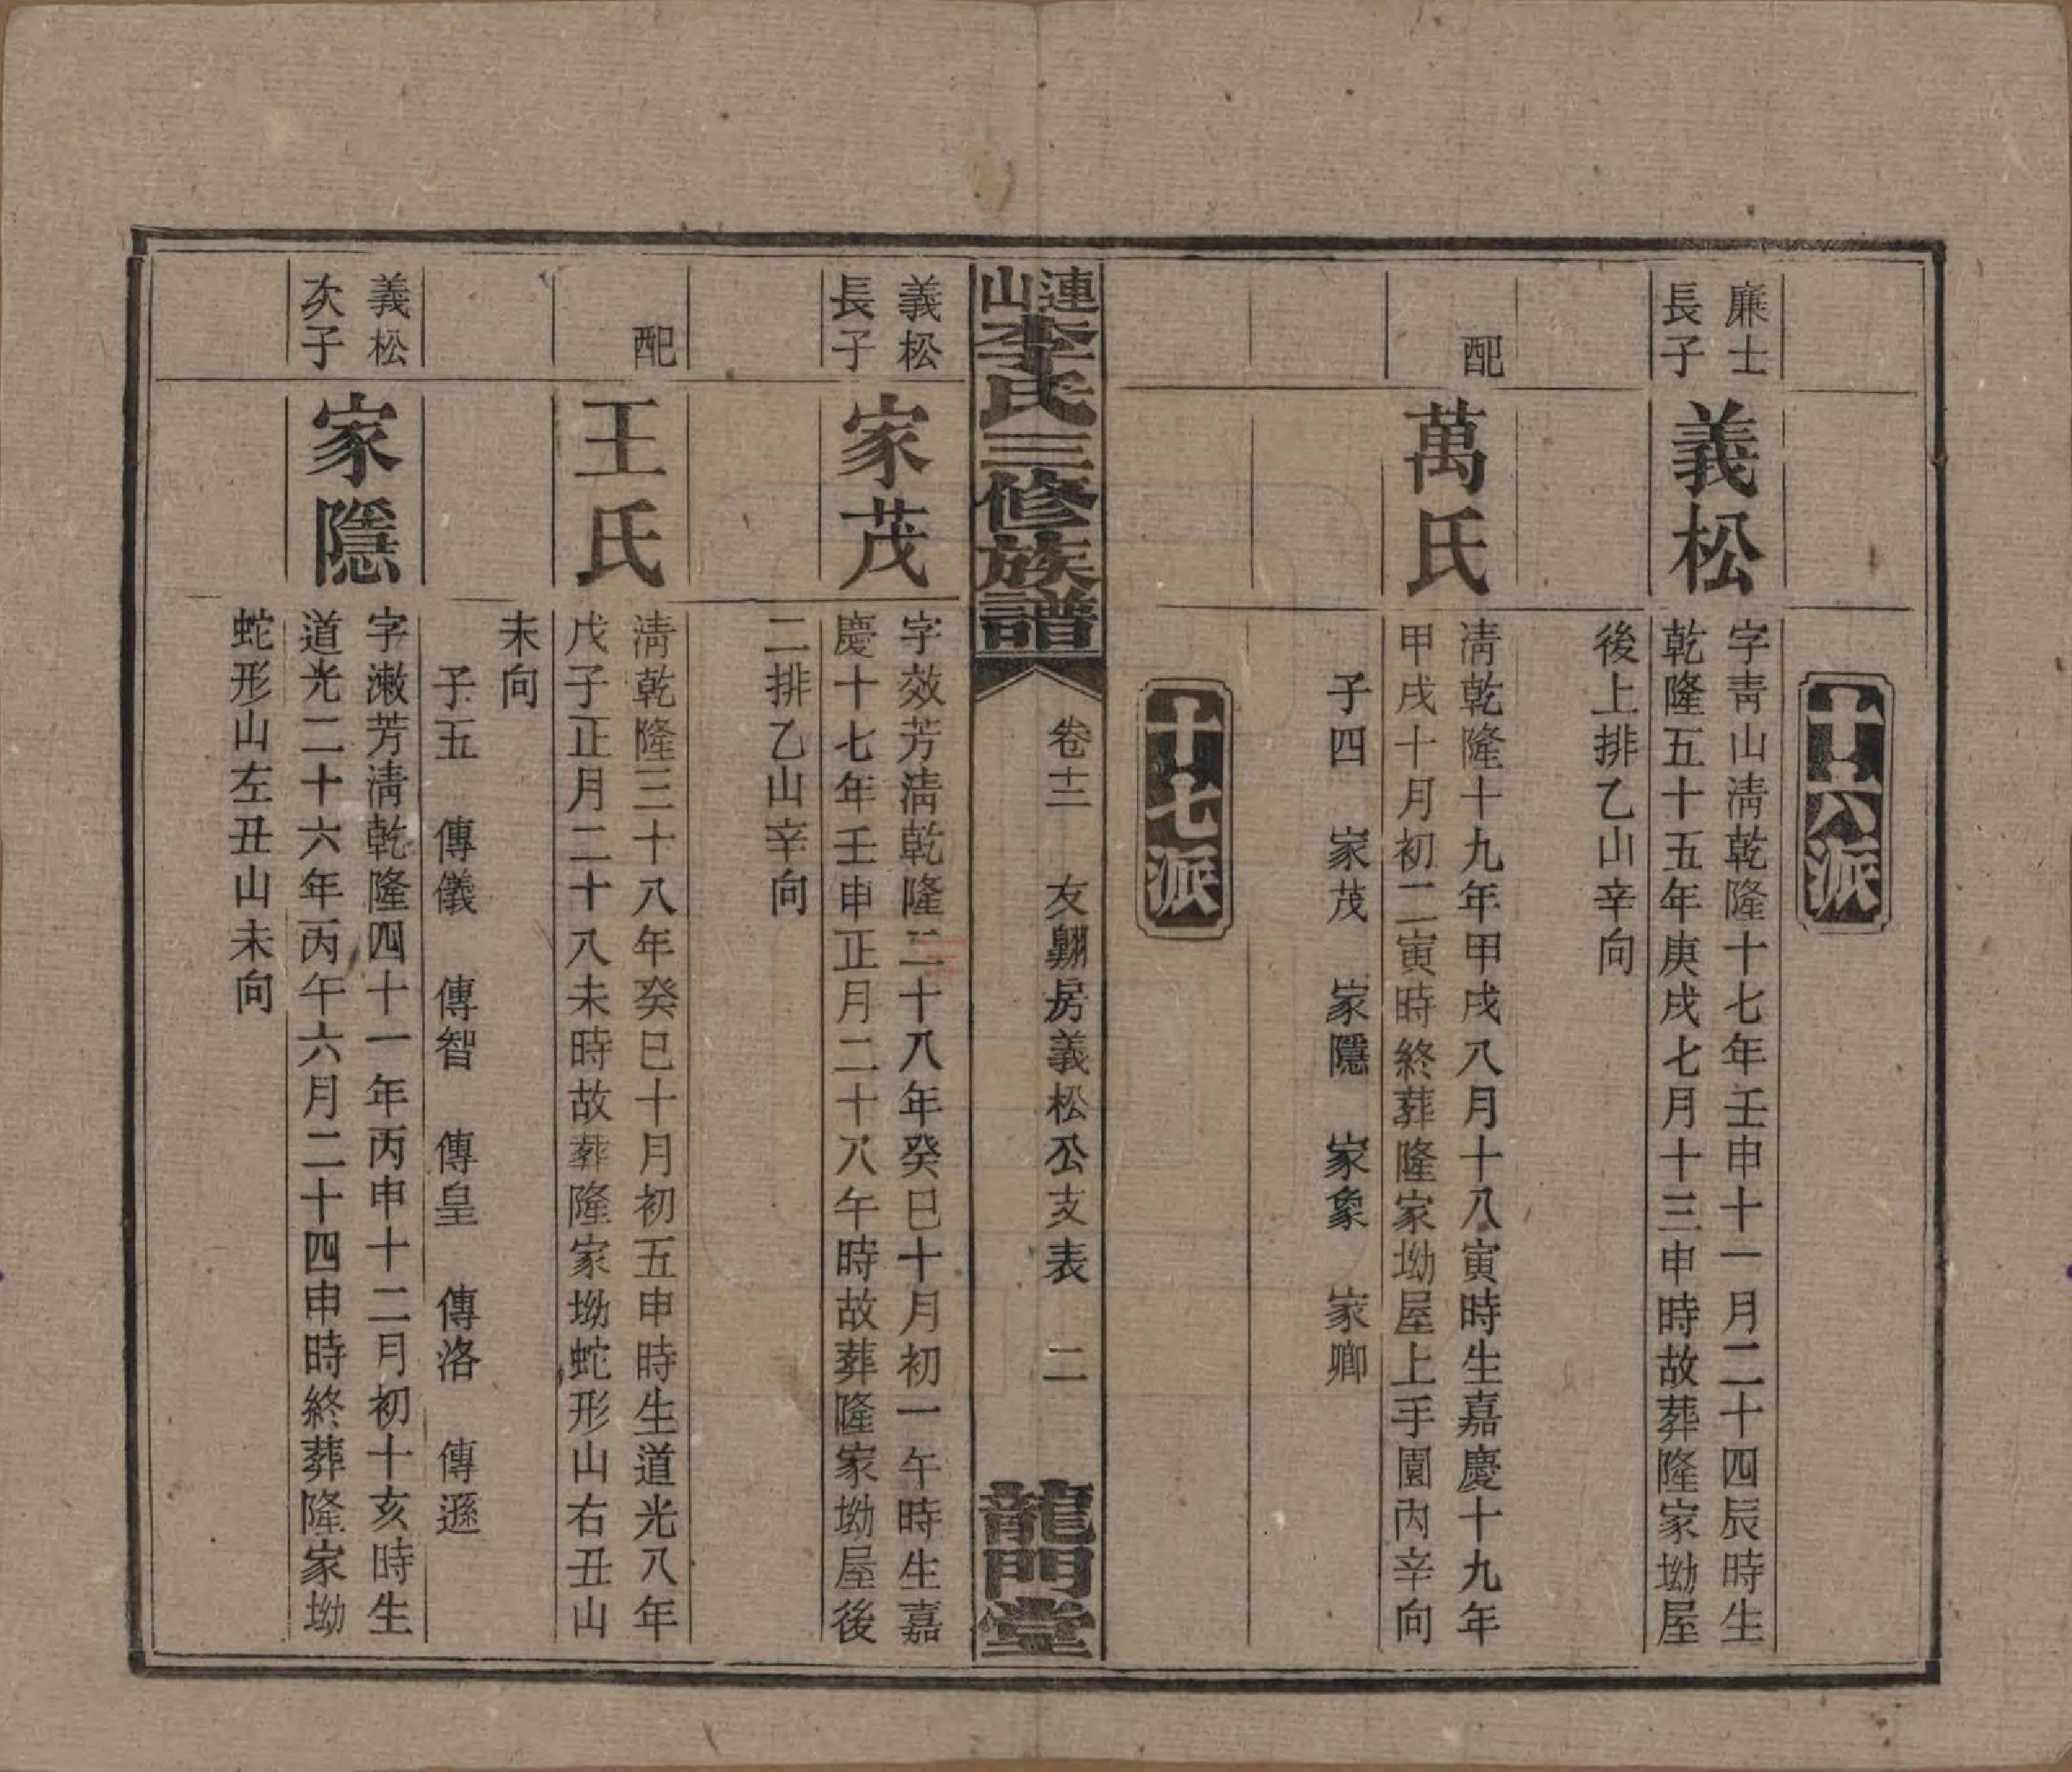 十六派
廉士
長子
義松
字靑山淸乾隆十七年壬申十一月二十四辰時生
乾隆五十五年庚戌七月十三申時故葬隆家坳屋
後上排乙山辛向
配
萬氏
淸乾隆十九年甲戌八月十八寅時生嘉慶十九年
甲戌十月初二寅時終葬隆家坳屋上手園內辛向
子四　家茂　家隱　家象　家卿
十七派
連山李氏三修族譜
卷十三　友翺房義松公支表　二
龍門堂
義松
長子
家茂
字效芳淸乾隆三十八年癸巳十月初一午時生嘉
慶十七年壬申正月二十八午時故葬隆家坳屋後
二排乙山辛向
配
王氏
淸乾隆三十八年癸巳十月初五申時生道光八年
戊子正月二十八未時故葬隆家坳蛇形山右丑山
未向
子五　傳儀　傳智　傳皇　傳洛　傳遜
義松
次子
家隱
字漱芳淸乾隆四十一年丙申十二月初十亥時生
道光二十六年丙午六月二十四申時終葬隆家坳
蛇形山左丑山未向